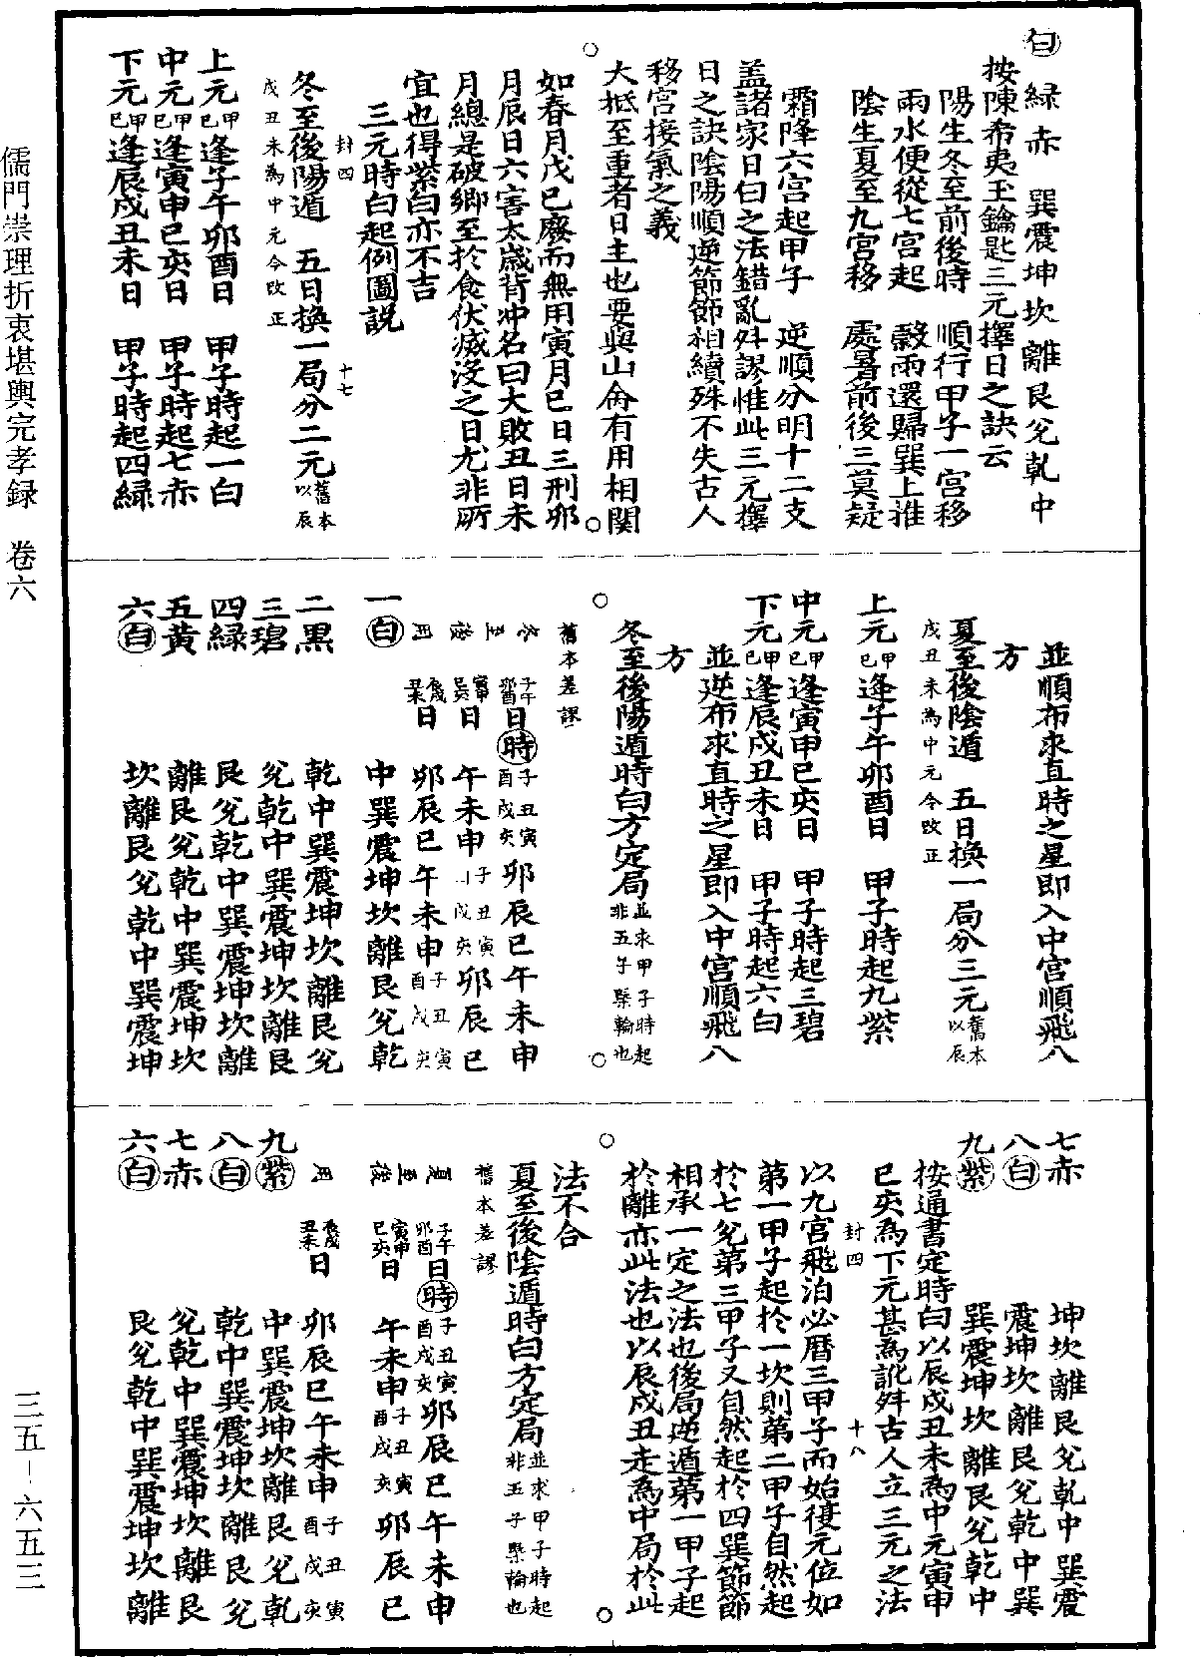 白 緑 赤 巽震坤坎離艮兌乾中
按陳希夷玉鑰匙三元擇日之訣云
陽生冬至前後時 順行甲子一宮移
雨水便從七宮起 穀雨還歸巽上推
陰生夏至九宮移 處暑前後三莫疑
霜降六宮起甲子 逆順分明十二支
盖諸家日白之法錯亂舛謬惟此三元擇
日之訣陰陽順逆節節相續殊不失古人
移宮接氣之義
大抵至重者日主也要與山侖有用相関
如春月戊巳廢而無用寅月巳日三刑卯
月辰日六害太歲背冲名曰大敗丑日未
月總是破鄉至於食伏滅沒之日尤非所
宜也得紫白亦不吉
三元時白起例圖説
封四 十七
冬至後陽遁 五日換一局分二元舊本以辰
戌丑未為中元今改正
上元甲巳逢子午卯酉日 甲子時起一白
中元甲巳逢寅申巳亥日 甲子時起七赤
下元甲巳逢辰戌丑未日 甲子時起四緑
並順布求直時之星即入中宮順飛八
方
夏至後陰遁 五日換一局分三元舊本以辰
戌丑未為中元今改正
上元甲巳逢子午卯酉日 甲子時起九紫
中元甲巳逢寅申巳亥日 甲子時起三碧
下元甲巳逢辰戌丑未日 甲子時起六白
並逆布求直時之星即入中宮順飛八
方
冬至後陽遁時白方定局並求甲子時起非五子槩輪也
舊本差謬
冬 子午卯酉日時 子丑寅卯辰巳午未申酉戌亥
至 寅申巳亥日 午未申子丑寅卯辰巳酉戌亥
後 辰戌丑未日 卯辰巳午未申子丑寅酉戌亥
一白 中巽震坤坎離艮兌乾
二黒 乾中巽震坤坎離艮兌
三碧 兌乾中巽震坤坎離艮
四緑 艮兌乾中巽震坤坎離
五黄 離艮兌乾中巽震坤坎
六白 坎離艮兌乾中巽震坤
七赤 坤坎離艮兌乾中巽震
八白 震坤坎離艮兌乾中巽
九紫 巽震坤坎離艮兌乾中
按通書定時白以辰戌丑未為中元寅申
巳亥為下元甚為訛舛古人立三元之法
封四 十八
以九宮飛泊必曆三甲子而始復元位如
第一甲子起於一坎則第二甲子自然起
於七兌第三甲子又自然起於四巽節節
相承一定之法也後局逆遁第一甲子起
於離亦此法也以辰戌丑走為中局於此
法不合
夏至後陰遁時白方定局並求甲子時起非五子槩輪也
舊本差謬
夏 子午卯酉日時 子丑寅卯辰巳午未申酉戌亥
至 寅申巳亥日 午未申子丑寅卯辰巳酉戌亥
後 辰戌丑未日 卯辰巳午未申子丑寅酉戌亥
九紫 中巽震坤坎離艮兌乾
八白 乾中巽震坤坎離艮兌
七赤 兌乾中巽震坤坎離艮
六白 艮兌乾中巽震坤坎離
儒門崇理折衷堪輿完孝録 卷六
三五-六五三